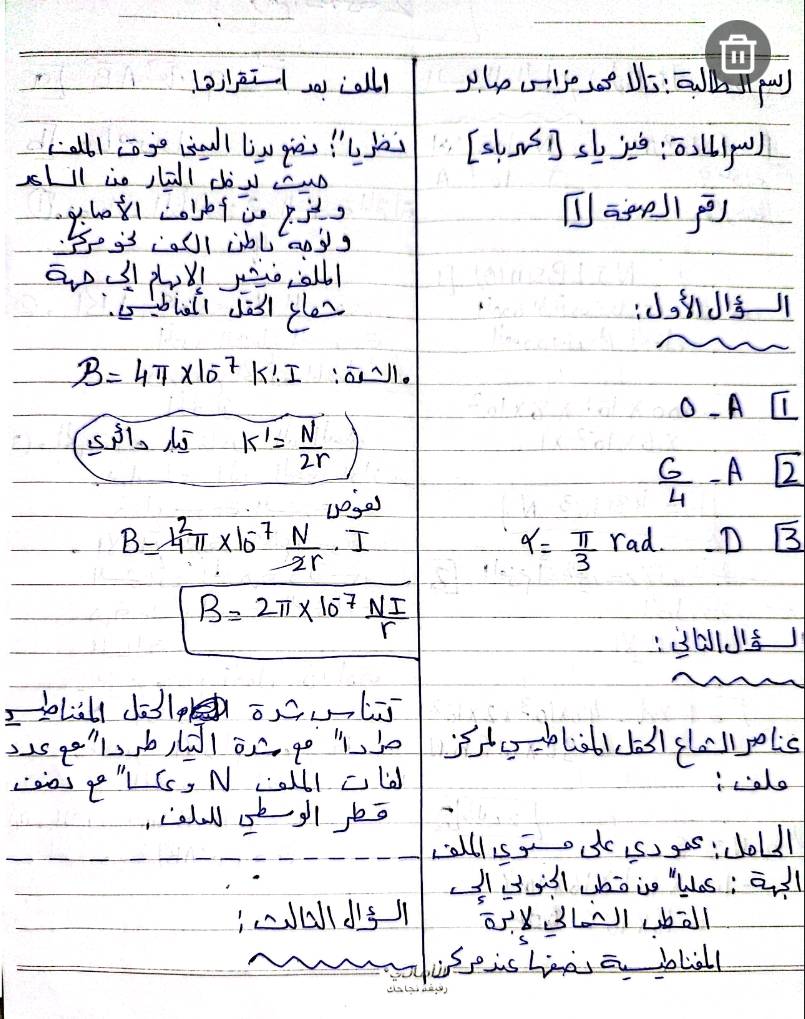 اسم الطالبة: تالا محمد فراس صابر
اسم المادة: فيزياء [كهرباء]
رقم الصفحة [1]
السؤال الأول:
1 A - 0
2 A - G/4
3 D - α = π/3 rad.
السؤال الثاني:
عناصر شعاع الحقل المغناطيسي لمركز
ملف:
الحامل: عمودي على مستوي الملف
الجهة: عمليا" من قطب الجنوبي إلى
القطب الشمالي لإبرة
المغناطيسية نضعها عند مركز
الملف بعد استقرارها.
نظريا": نضع يدنا اليمنى فوق الملف
حيث يدخل التيار من الساعد
ويخرج من أطراف الأصابع.
ونوجه باطن الكف نحو مركز
الملف فيشير الإبهام إلى جهة
شعاع الحقل المغناطيسي.
. الشدة: B = 4π × 10⁻⁷ k'. I
k' = N/2r تيار دائري
نعوض
B = 4π × 10⁻⁷ N/2r . I
2
B = 2π × 10⁻⁷ NI/r
تتناسب شدة الحقل المغناطيسي
طردا" مع شدة التيار طردا" مع عدد
لفات الملف N وعكسا" مع نصف
قطر الوسطي للملف.
السؤال الثالث:
رفيقة نجاحك